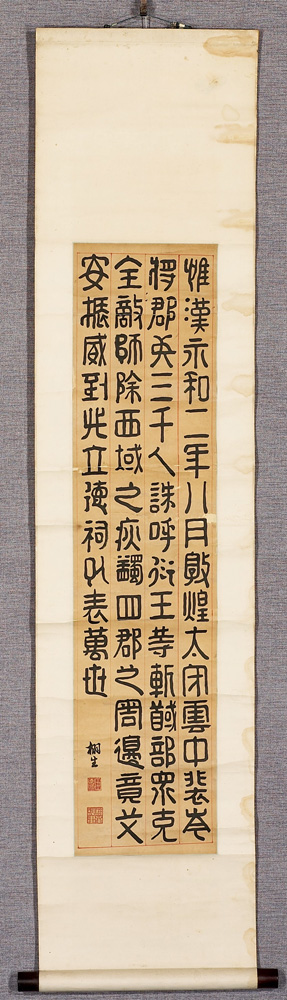 惟漢永和二年八月敦煌太守雲中裴岑
將郡兵三千人誅呼衍王等斬馘部眾克
全敵師除西域之疢蠲四郡之害邊竟艾
安振威到此立德祠以表萬世
栩生